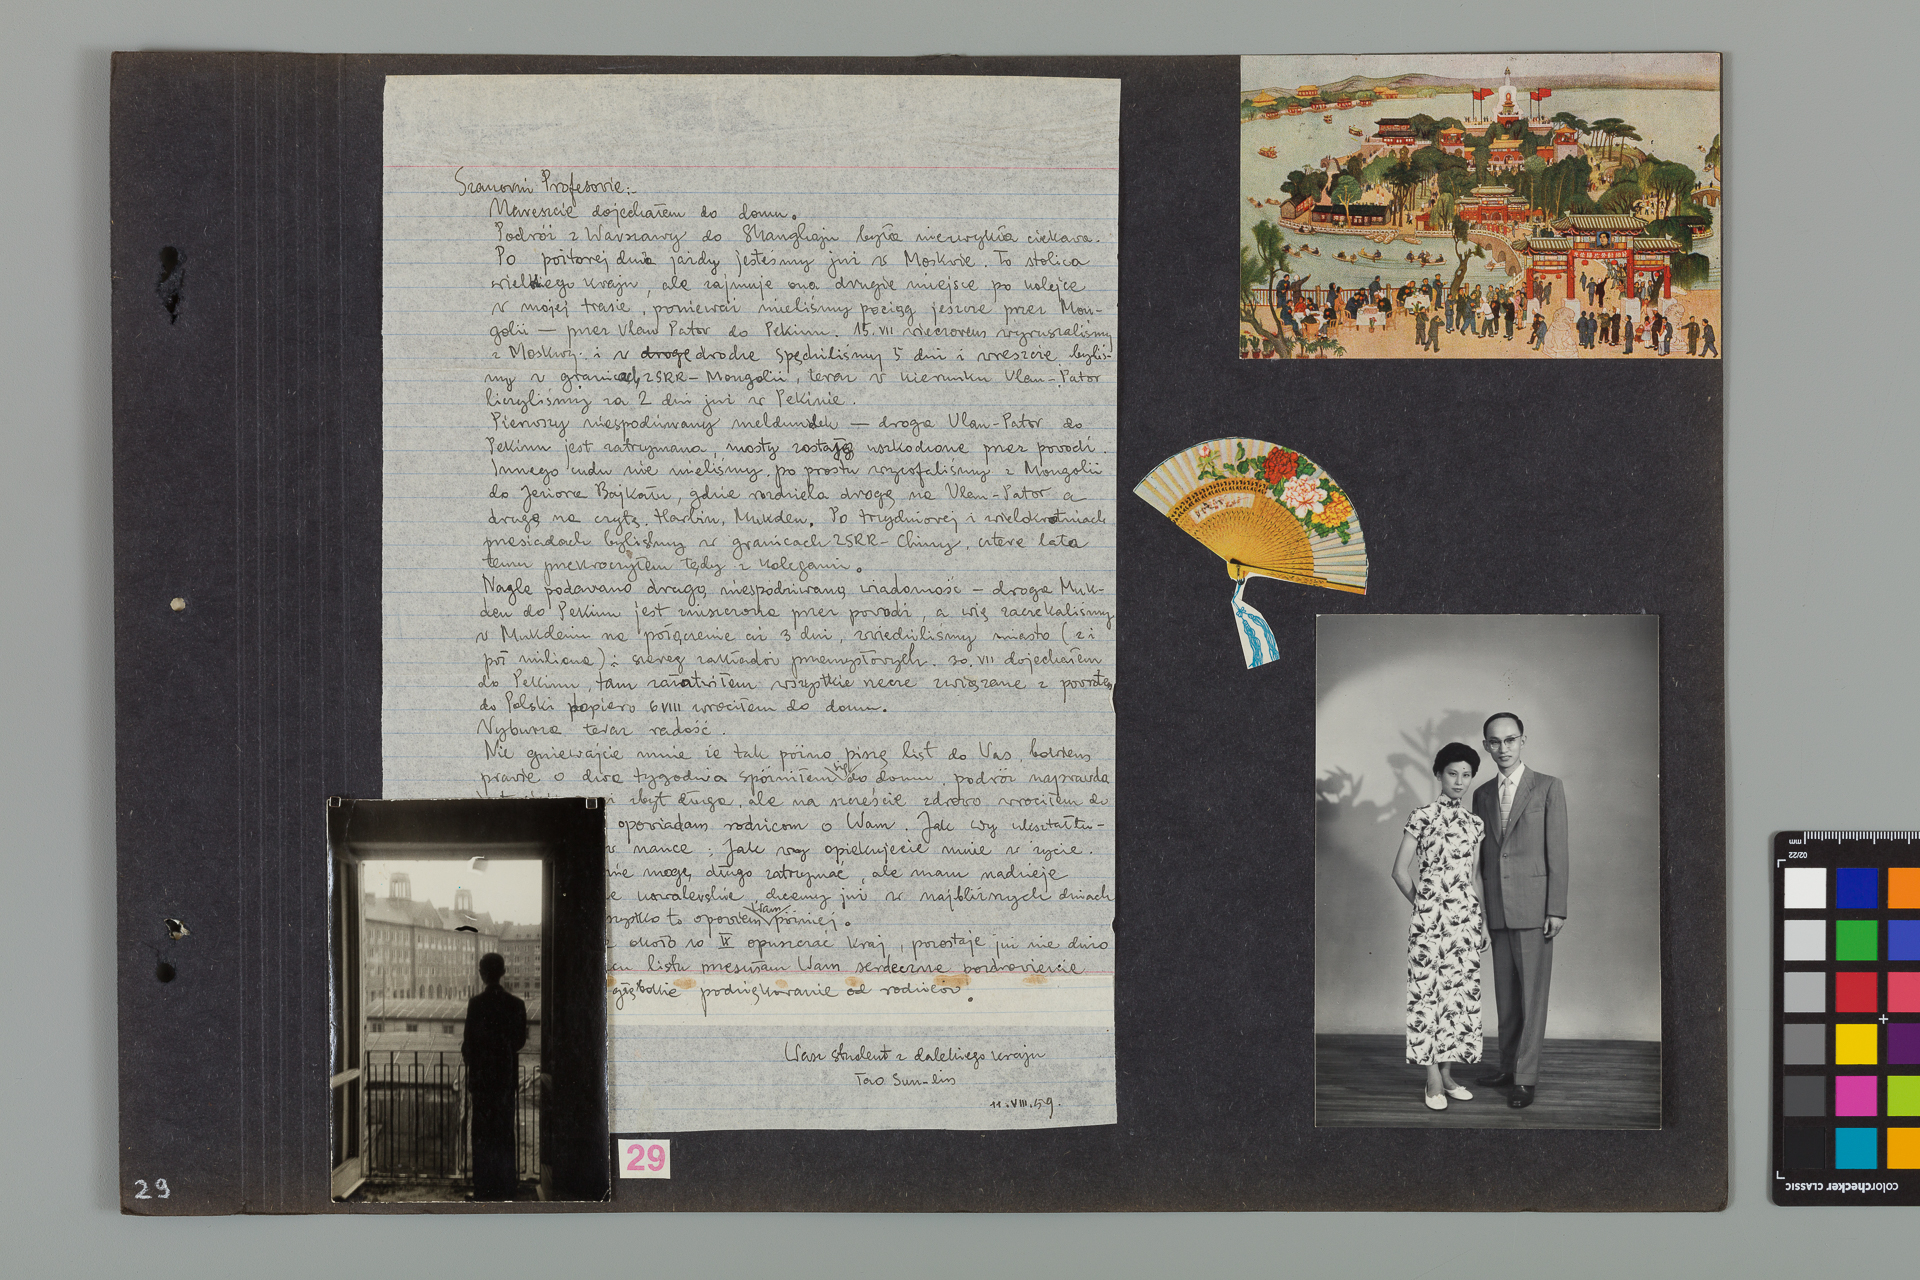 Szanowni Profesorie:-
Nareszcie dojechałem do domu.
Podróż z Warszawy do Shanghaju była niezwykła ciekawa.
Po półtorej dnia jazdy jesteśmy już w Moskwie. To stolica
wielkiego kraju, ale zajmuje ona drugie miejsce po kolejce
w mojej trasie, ponieważ mieliśmy pociąg jeszcze przez Mon-
golii — przez Ulan Pator do Pekinu. 15.VII wieczorem wyruszaliśmy
z Moskwy. i w drogę drodze spędziliśmy 5 dni i wreszcie byliś-
my w granicach ZSRR – Mongolii, teraz w kierunku Ulan-Pator
liczyliśmy za 2 dni już w Pekinie.
Pierwszy niespodziwany meldunek — droga Ulan-Pator do
Pekinu jest zatrzymana, mosty zostają uszkodzone przez powodzi.
Innego cudu nie mieliśmy. po prostu wycofaliśmy z Mongolii
do Jeziora Bajkału, gdzie rozdziela drogę na Ulan-Pator a
drugą na czytę. Harbin, Mukden. Po trzydniowej i wielokrotniach
przesiadach byliśmy w granicach ZSRR – Chiny, cztere lata
temu przekroczyłem tędy z kolegami.
Nagle podawano drugą niespodziwaną wiadomość – droga Muk-
den do Pekinu jest zniszczona przez powodzi, a więc zaczekaliśmy
w Mukdenie na połączenie aż 3 dni, zwiedziliśmy miasto (2 i
pół miliona) i szereg zakładów przemysłowych. 30.VII dojechałem
do Pekinu, tam załatwiłem wszystkie rzecze związane z powrotem
do Polski dopiero 6 VIII wróciłem do domu.
Wybucha teraz radość.
Nie gniewajcie mnie że tak późno piszę list do Was, bowiem
prawie o dwa tygodnia spóźniłem się do domu, podróż naprawdę
zbyt długa, ale na szczęście zdrowo wróciłem do
opowiadam rodzicom o Wam. Jak wy ukształtu-
w nauce; Jak wy opiekujecie mnie w życie.
nie mogę długo zatrzymać, ale mam nadzieję
kowalewskie, chcemy już w najbliższych dniach
wszystko to opowiem Wam później.
około 10 IX opuszczać kraj, pozostaje już nie dużo
listu przesyłam Wam serdeczne pozdrowienie
głębokie podziękowanie od rodziców.
Wasz student z dalekiego kraju
Tao Sun-lin
11.VIII.59.
29
29
02/22
mm
colorchecker CLASSIC